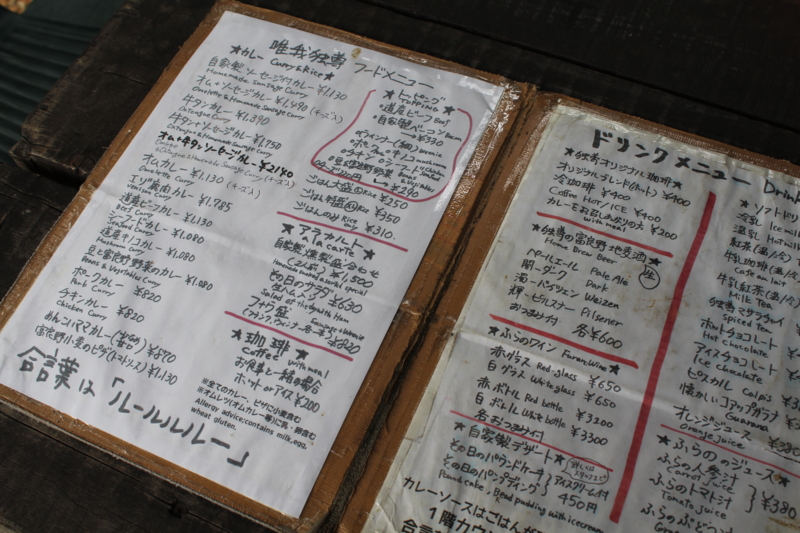 唯我独尊 フードメニュー
★カレー Curry & Rice★
自家製ソーセージ付カレー ¥1,130
Homemade Sausage Curry
オム+ソーセージカレー ¥1,490 (チーズ入)
Omelette & Homemade Sausage Curry
牛タンカレー ¥1,390
Oxtongue Curry
牛タン+ソーセージカレー ¥1,750
Oxtongue & Homemade Sausage Curry
オム+牛タン+ソーセージカレー ¥2,140
オムカレー ¥1,130 (チーズ入)
Omelette Curry
エゾ鹿肉カレー ¥1,785
Venison Curry
道産ビーフカレー ¥1,130
Beef Curry
シーフードカレー ¥1,080
Seafood Curry
道産キノコカレー ¥1,080
豆と富良野野菜のカレー ¥1,080
Beans & Vegetables Curry
ポークカレー ¥820
Pork Curry
チキンカレー ¥820
Chicken Curry
めんこいマイカレー(甘口) ¥670
富良野小麦のピザ(トマトソース) ¥1,130
合言葉は「ルールルルー」
★トッピング★
TOPPING
●道産ビーフ Beef
●自家製ベーコン Bacon
→¥330
●豆と富良野野菜
Beans & Vegetables
→¥290
ごはん大盛 Rice ¥250
ごはん特盛 Rice ¥350
ごはんのみ Rice only ¥310
★アラカルト★
A la carte
自家製燻製盛合わせ
(2人前) ¥1,500
その日のサラダ ¥630
フラノ盛
各 ¥820
★珈琲★
Coffee with meal
お食事と一緒の場合
ホット or アイス ¥200
※全てのカレー、ピザに小麦含む
Allergy advice; contains milk, egg,
wheat gluten.
ドリンクメニュー Drink
★独尊オリジナル珈琲★
オリジナルブレンド(ホット) ¥400
冷珈琲 ¥400
Coffee HOT / ICE ¥400
カレーをお召しあがりの方 ¥200
with meal
★独尊の富良野地麦酒
Home Brew Beer
生
ペールエール Pale Ale
闇-ダーク Dark
濁-バイツェン Weizen
輝-ピルスナー Pilsener
おつまみ付 各 ¥600
★ふらのワイン Furano Wine★
赤グラス Red glass ¥650
白グラス White glass ¥650
赤ボトル Red bottle ¥3200
白ボトル White bottle ¥3300
各おつまみ付
★自家製デザート★
その日のパウンドケーキ
その日のパンプディング
アイスクリーム付
450円
Pound cake, Bread pudding with icecream
カレーソースはごはんが
1階カウン
合言
★ソフトドリ
冷乳 Ice mil
温乳 Hot mil
紅茶
Tea
牛乳珈琲
Cafe au lait
牛乳紅茶
Milk Tea
独尊でサラチャイ
Spiced Tea
ホットチョコレート
Hot chocolate
アイスチョコレート
Ice chocolate
ドゥスカルピ Calpis
懐かしいコアップガラナ
Guarana
オレンジジュース
Orange juice
★ふらののジュース★
ふらの人参汁
Carrot juice
ふらのトマト汁
Tomato juice
ふらのぶどう
¥380